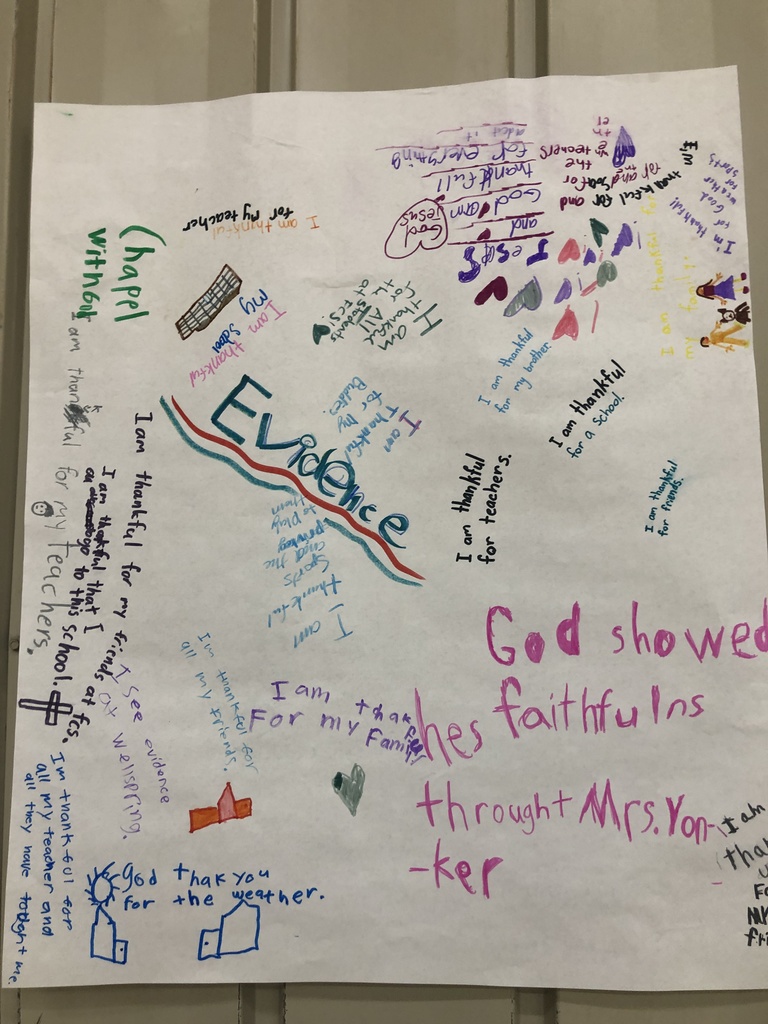 Evidence
Chapel
with
I am thankful
for My teacher
I am thankful
my
School
I am
thankful
for All
the students
at FCS!
Jesus
and
God
Jesus
God I am
thankfull
for everything
I'm thankful!
for
God
weather
sports
I am thankful for
my family
I am thankful
for my brother.
I am thankful
for a school.
I am thankful
for teachers.
I am thankful
for friends.
I am
Thankful
for My
Buddies!
I am
thankful
Sports
and the
to play
them
I am thankful for my teachers.
I am thankful for my friends at fcs.
I am thankful that I
go to this school.
I see evidence
at wellspring.
I'm thankful for
all my friends.
I am thak
For my Family
God showed
hes faithfulns
throught Mrs. Yon-
-ker
I am
tha
Fo
fri
god thak you
for the weather.
I'm thankful for
all my teacher and
all they have tought me.